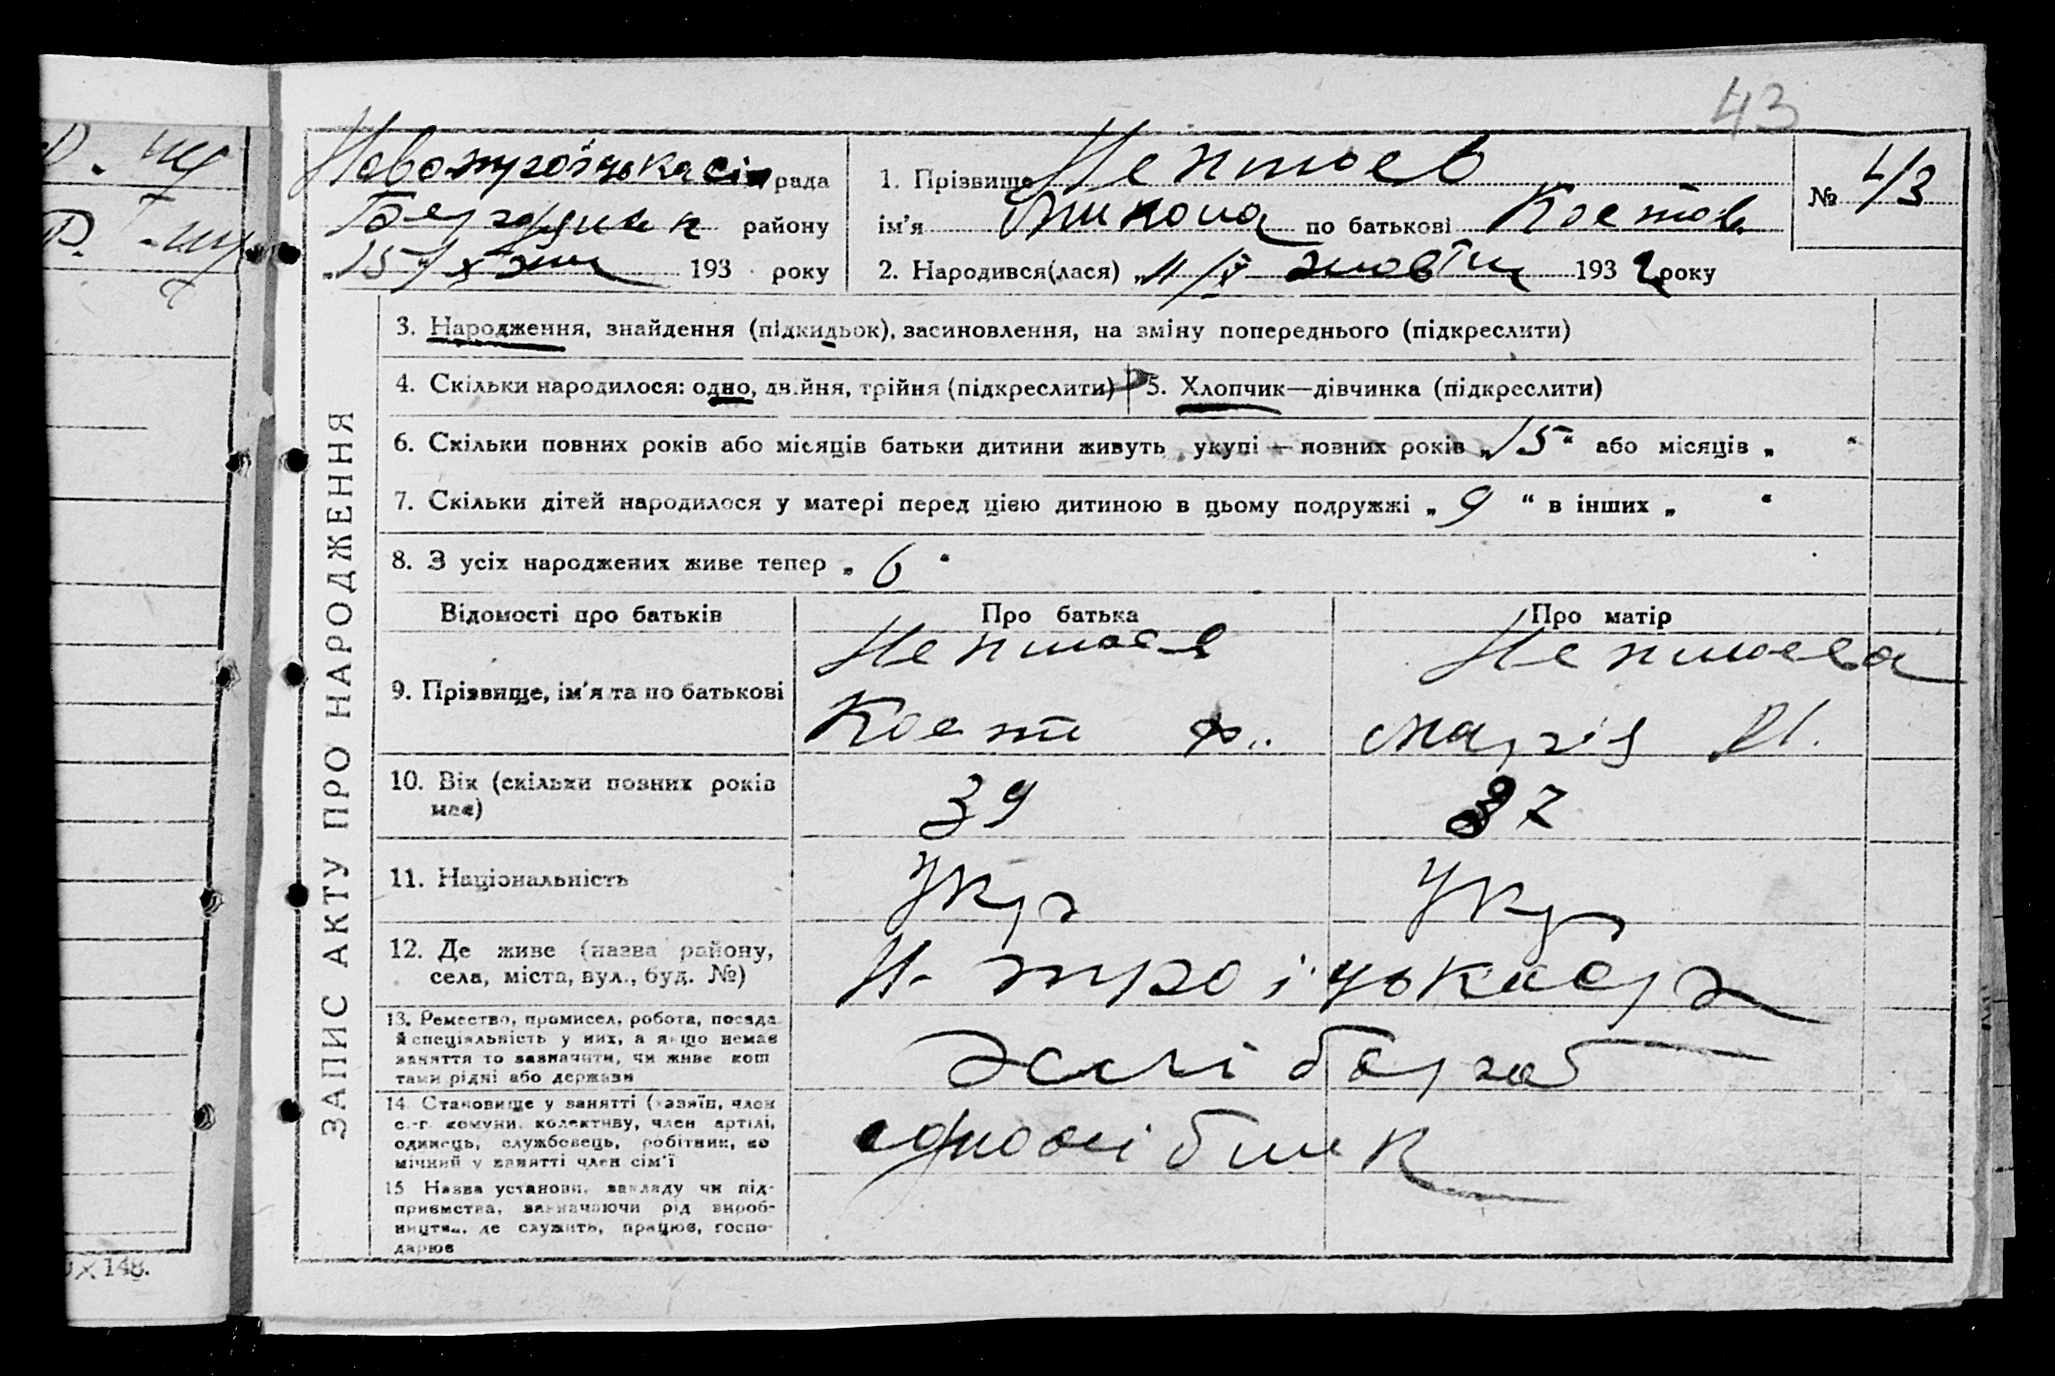 43
Новотроїцька сіл рада
району
„15“/X 193 року
1. Прізвище Нептоєв
ім'я Микола по батькові Костов.
№ 43
2. Народився(лася) „11/X жовтн 1932 року
ЗАПИС АКТУ ПРО НАРОДЖЕННЯ
3. Народження, знайдення (підкидьок), засиновлення, на зміну попереднього (підкреслити)
4. Скільки народилося: одно, двійня, трійня (підкреслити) 5. Хлопчик—дівчинка (підкреслити)
6. Скільки повних років або місяців батьки дитини живуть укупі — повних років „15“ або місяців „ “
7. Скільки дітей народилося у матері перед цією дитиною в цьому подружжі „9“ в інших „ “
8. З усіх народжених живе тепер „6“
Відомості про батьків Про батька Про матір
9. Прізвище, ім'я та по батькові Нептоєв Нептоєва
Кост Ф. Марія
10. Вік (скільки повних років має) 39 37
11. Національність Укр Укр
12. Де живе (назва району, села, міста, вул., буд. №) Н-Троїцька с/р
13. Ремество, промисел, робота, посада й спеціяльність у них, а якщо немає заняття то зазначити, чи живе коштами рідні або держави хлібороб
14. Становище у занятті (хазяїн, член с.-г. комуни, колективу, член артілі, одинець, службовець, робітник, помічний у занятті член сім'ї одноосібник
15. Назва установи, закладу чи підприємства, зазначаючи рід виробництва, де служить, працює, господарює
× 148.